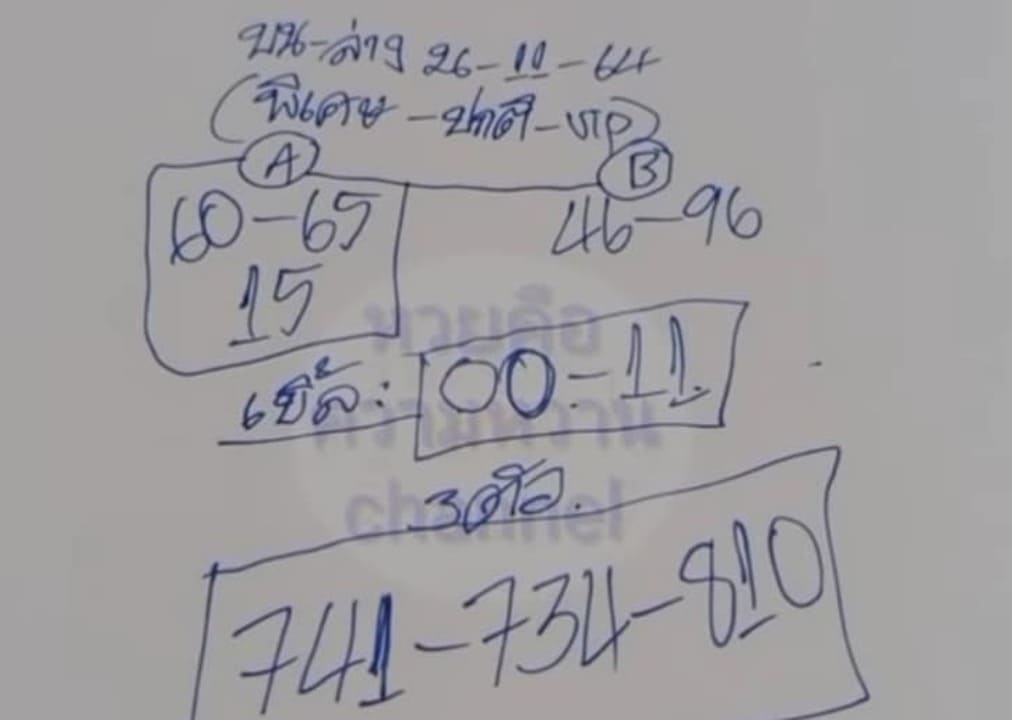 บน-ล่าง 26-11-64
(พิเศษ-ปกติ-VIP)
A B
60-65 46-96
15
เบิ้ล: 00-11
3ตัว.
741-734-810
หวยคือ
ความหวาน
channel